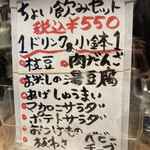 ちょい飲みセット
税込¥550
1ドリンク&小鉢1
枝豆
肉だんご
お出しの湯豆腐
あげしゅうまい
マカロニサラダ
ポテトサラダ
おつけもの
板わさ